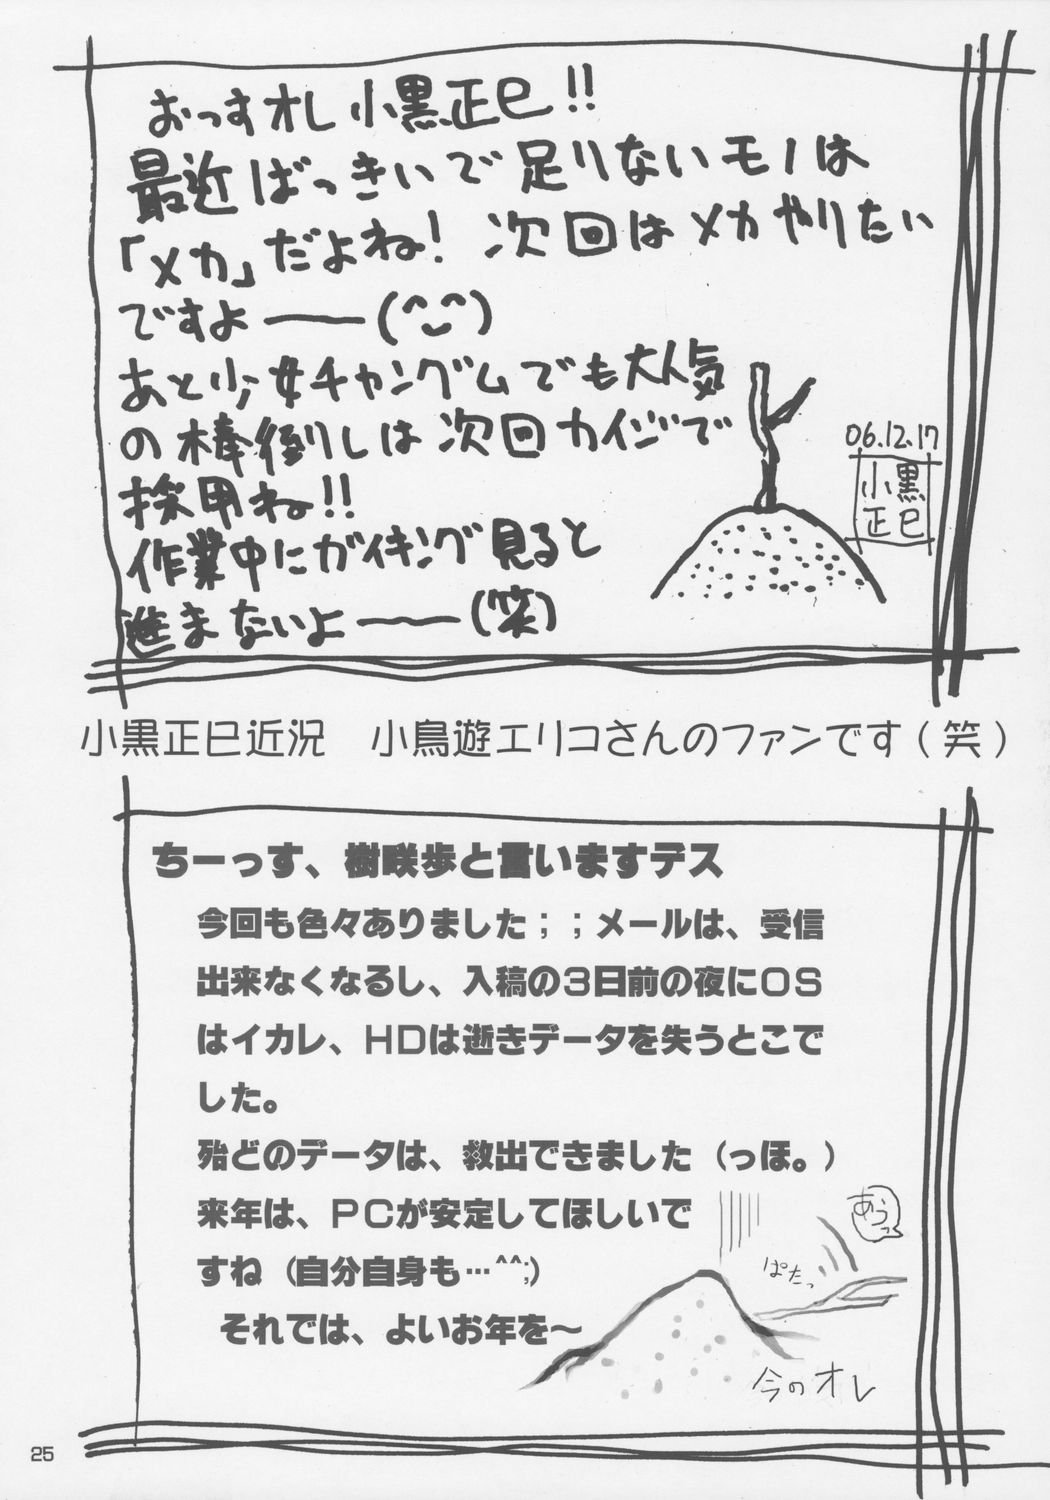 おっすオレ小黒正巳!!
最近ばっきぃで足りないモノは
「メカ」だよね! 次回はメカやりたい
ですよ――(^‿^)
あと少女チャングムでも大人気
の棒倒しは次回カイジで
採用ね!!
作業中にガイキング見ると
進まないよ――(笑)
06.12.17
小黒
正巳
小黒正巳近況　小鳥遊エリコさんのファンです(笑)
ちーっす、樹咲歩と言いますデス
今回も色々ありました；；メールは、受信
出来なくなるし、入稿の3日前の夜にOS
はイカレ、HDは逝きデータを失うとこで
した。
殆どのデータは、救出できました（っほ。）
来年は、PCが安定してほしいで
すね（自分自身も…^^;）
それでは、よいお年を～
あうっ
ぱたっ
今のオレ
25